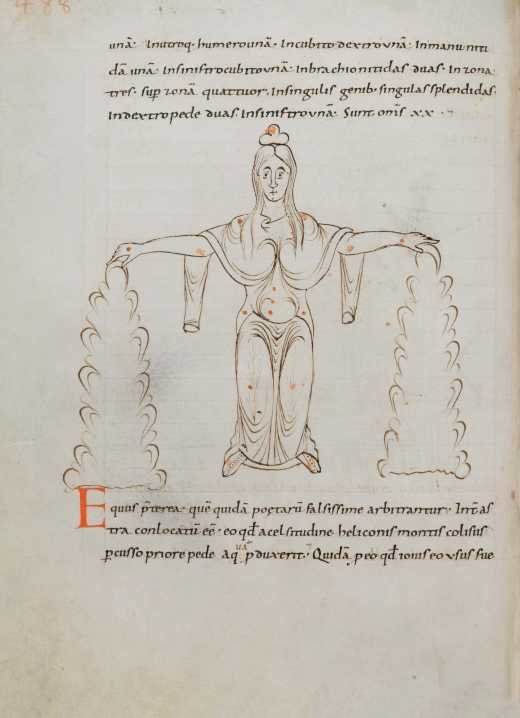 488
unā· Inutroq· humero unā· In cubito dextro unā· In manu niti
dā unā· In sinistro cubito unā· In brachio nitidas duas· In zona
tres· sup zonā quattuor· In singulis genib· singulas splendidas·
In dextro pede duas· In sinistro unā· Sunt oms xx·
Equus p̄terea· quē quidā poetarū falsissime arbitrantur· Int as
tra conlocatū eē· eo qđ a celsitudine heliconis montis colisus
p̱cusso priore pede aquā p̱duxerit· Quidā p̱ eo qđ iouis eo usus fue